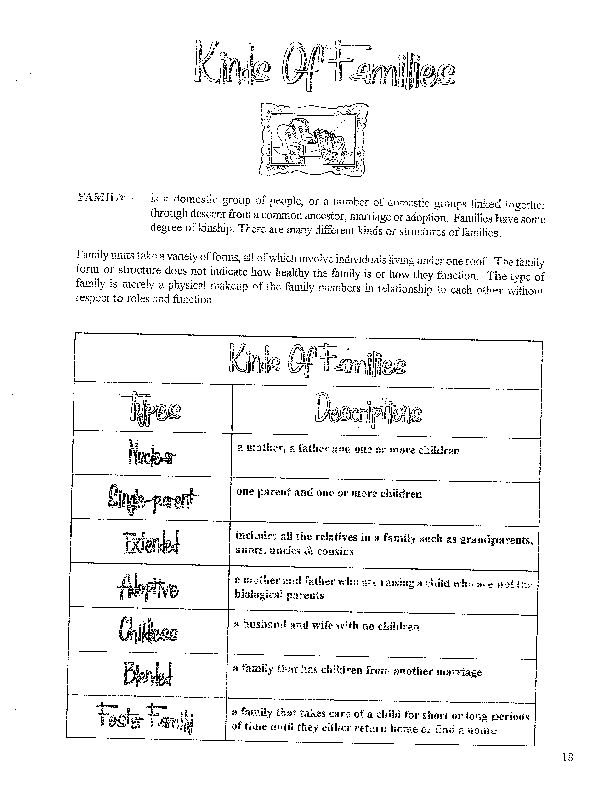 Kinds Of Families
FAMILY - is a domestic group of people, or a number of domestic groups linked together
through descent from a common ancestor, marriage or adoption. Families have some
degree of kinship. There are many different kinds or structures of families.
Family units take a variety of forms, all of which involve individuals living under one roof. The family
form or structure does not indicate how healthy the family is or how they function. The type of
family is merely a physical makeup of the family members in relationship to each other without
respect to roles and function.
Kinds Of Families
Types Descriptions
Nuclear a mother, a father and one or more children
Single-parent one parent and one or more children
Extended includes all the relatives in a family such as grandparents,
aunts, uncles & cousins
Adoptive a mother and father who are raising a child who are not the
biological parents
Childless a husband and wife with no children
Blended a family that has children from another marriage
Foster Family a family that takes care of a child for short or long periods
of time until they either return home or find a home
18